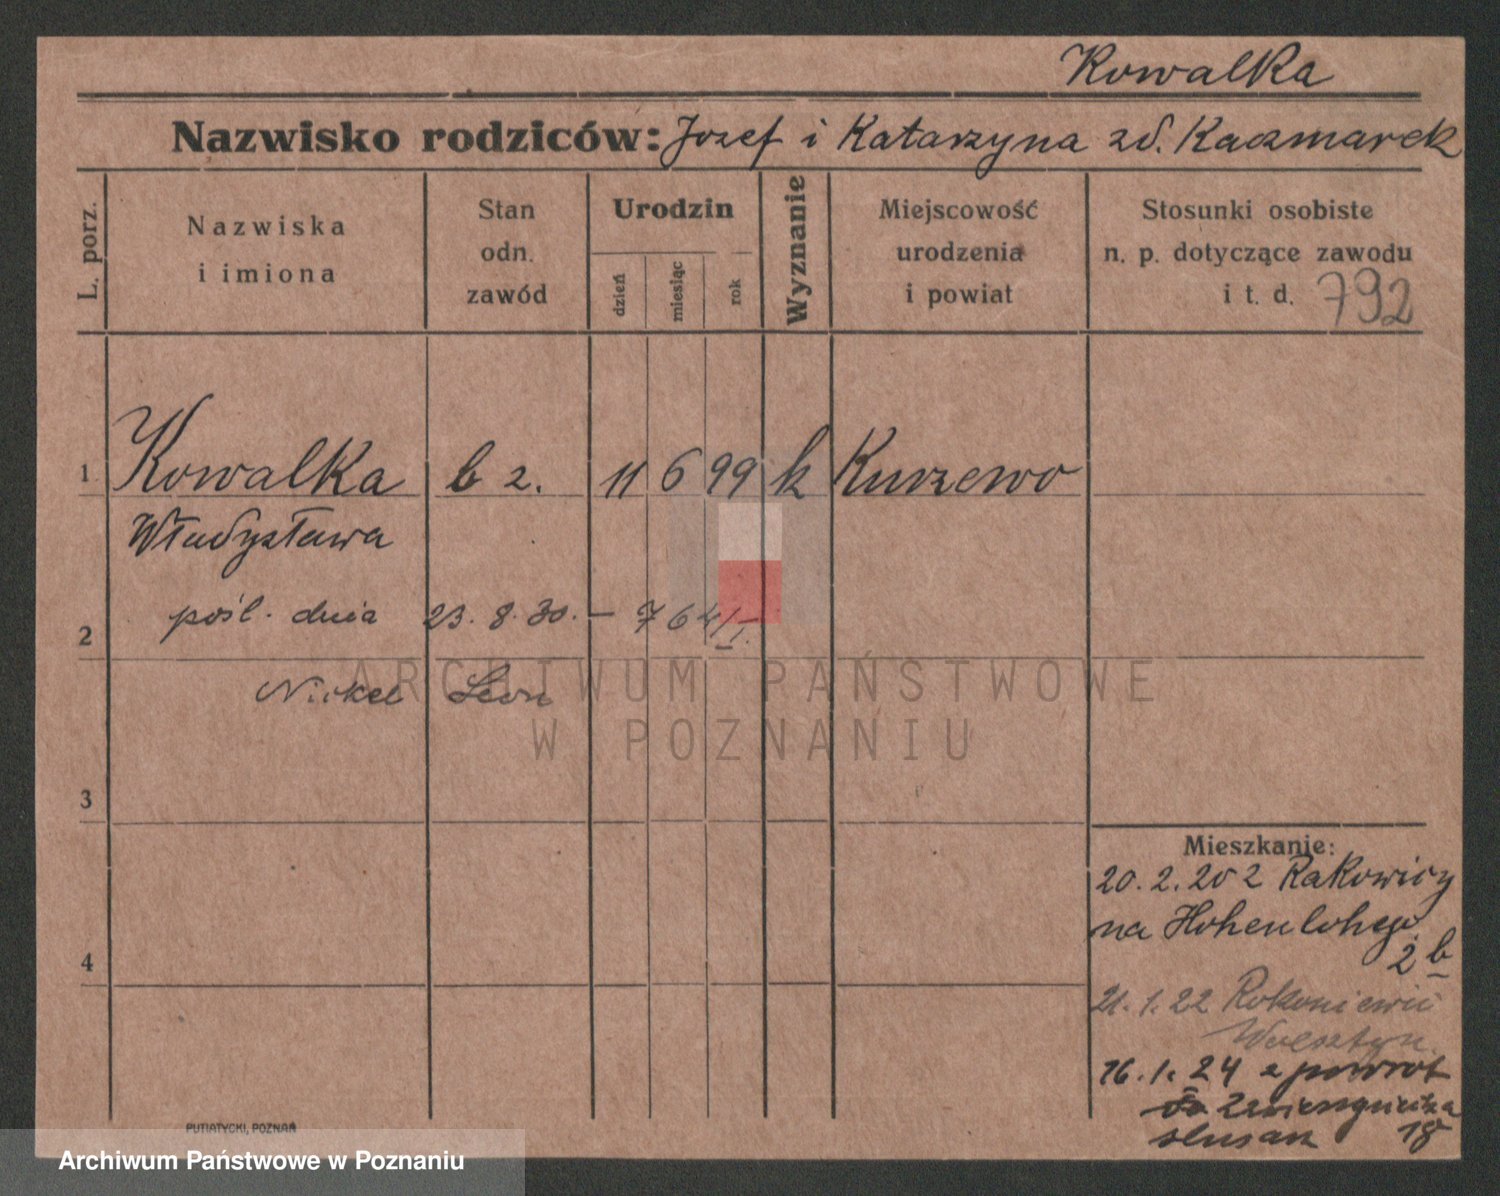 Kowalka
Nazwisko rodziców: Jozef i Katarzyna zd. Kaczmarek
L. porz.
Nazwiska
i imiona
Stan
odn.
zawód
Urodzin
dzień
miesiąc
rok
Wyznanie
Miejscowość
urodzenia
i powiat
Stosunki osobiste
n. p. dotyczące zawodu
i t. d. 792
1 Kowalka b z. 11 6 99 k Kurzewo
Władysława
2 pośl. dnia 23. 8. 30. – 764/I.
Nickel Leon
ARCHIWUM PAŃSTWOWE
W POZNANIU
3
4
Mieszkanie:
20. 2. 20 z Rakowicy
na Hohenlohego
2 b
21. 1. 22
Wolsztyn
16. 1. 24 z powrot
18
PUTIATYCKI, POZNAŃ
Archiwum Państwowe w Poznaniu